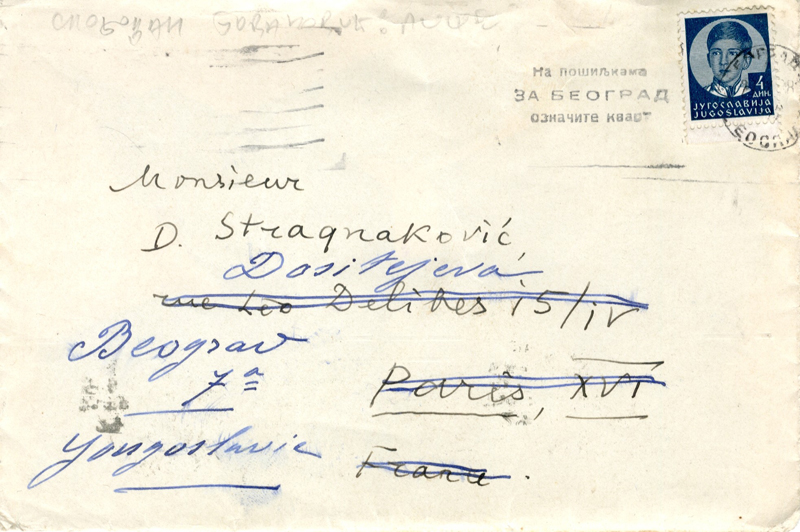 На пошиљкама
ЗА БЕОГРАД
означите кварт
4
ДИН.
ЈУГОСЛАВИЈА
JUGOSLAVIJA
Monsieur
D. Stragnaković,
Dositejeva
rue Leo Delibes 15/IV
Beograd
7a
Paris, XVI
Yougoslavie
France.